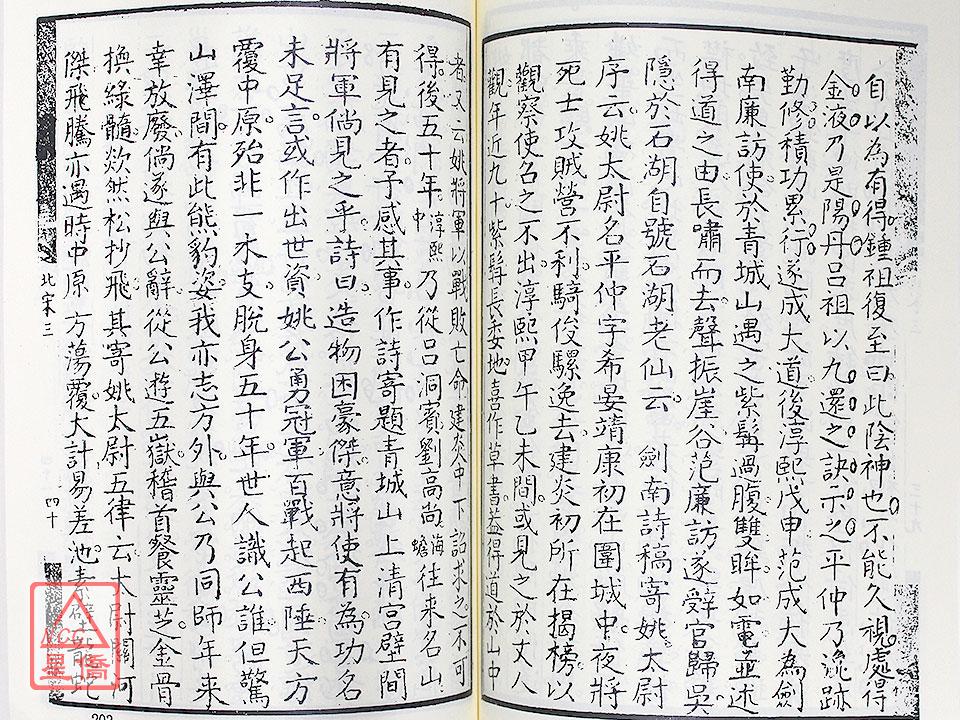 自以為有得鍾祖復至曰此陰神也不能久視處得
金液乃是陽丹呂祖以九還之訣示之平仲乃混跡
勤修積功累行遂成大道後淳熙戊申范成大為劍
南廉訪使於青城山遇之紫髯過腹雙眸如電並述
得道之由長嘯而去聲振崖谷范廉訪遂辭官歸吳
隱於石湖自號石湖老仙云 劍南詩稿寄姚太尉
序云姚太尉名平仲字希晏靖康初在圍城中夜將
死士攻賊營不利騎俊騾逸去建炎初所在揭榜以
觀察使名之不出淳熙甲午乙未間或見之於丈人
觀年近九十紫髯長委地喜作草書蓋得道於山中
者又云姚將軍以戰敗亡命建炎中下詔求之不可
得後五十年淳熙中乃從呂洞賓劉高尚海蟾往來名山
有見之者予感其事作詩寄題青城山上清宮壁間
將軍倘見之乎詩曰造物困豪傑意將使有為功名
未足言或作出世資姚公勇冠軍百戰起西陲天方
覆中原殆非一木支脫身五十年世人識公誰但驚
山澤間有此熊豹姿我亦志方外與公乃同師年來
幸放廢倘遂與公辭從公遊五嶽稽首餐靈芝金骨
換綠髓欻然松抄飛其寄姚太尉五律云太尉關河
傑飛騰亦遇時中原方蕩覆大計易差池素壁龍蛇
北宋三
四十
203